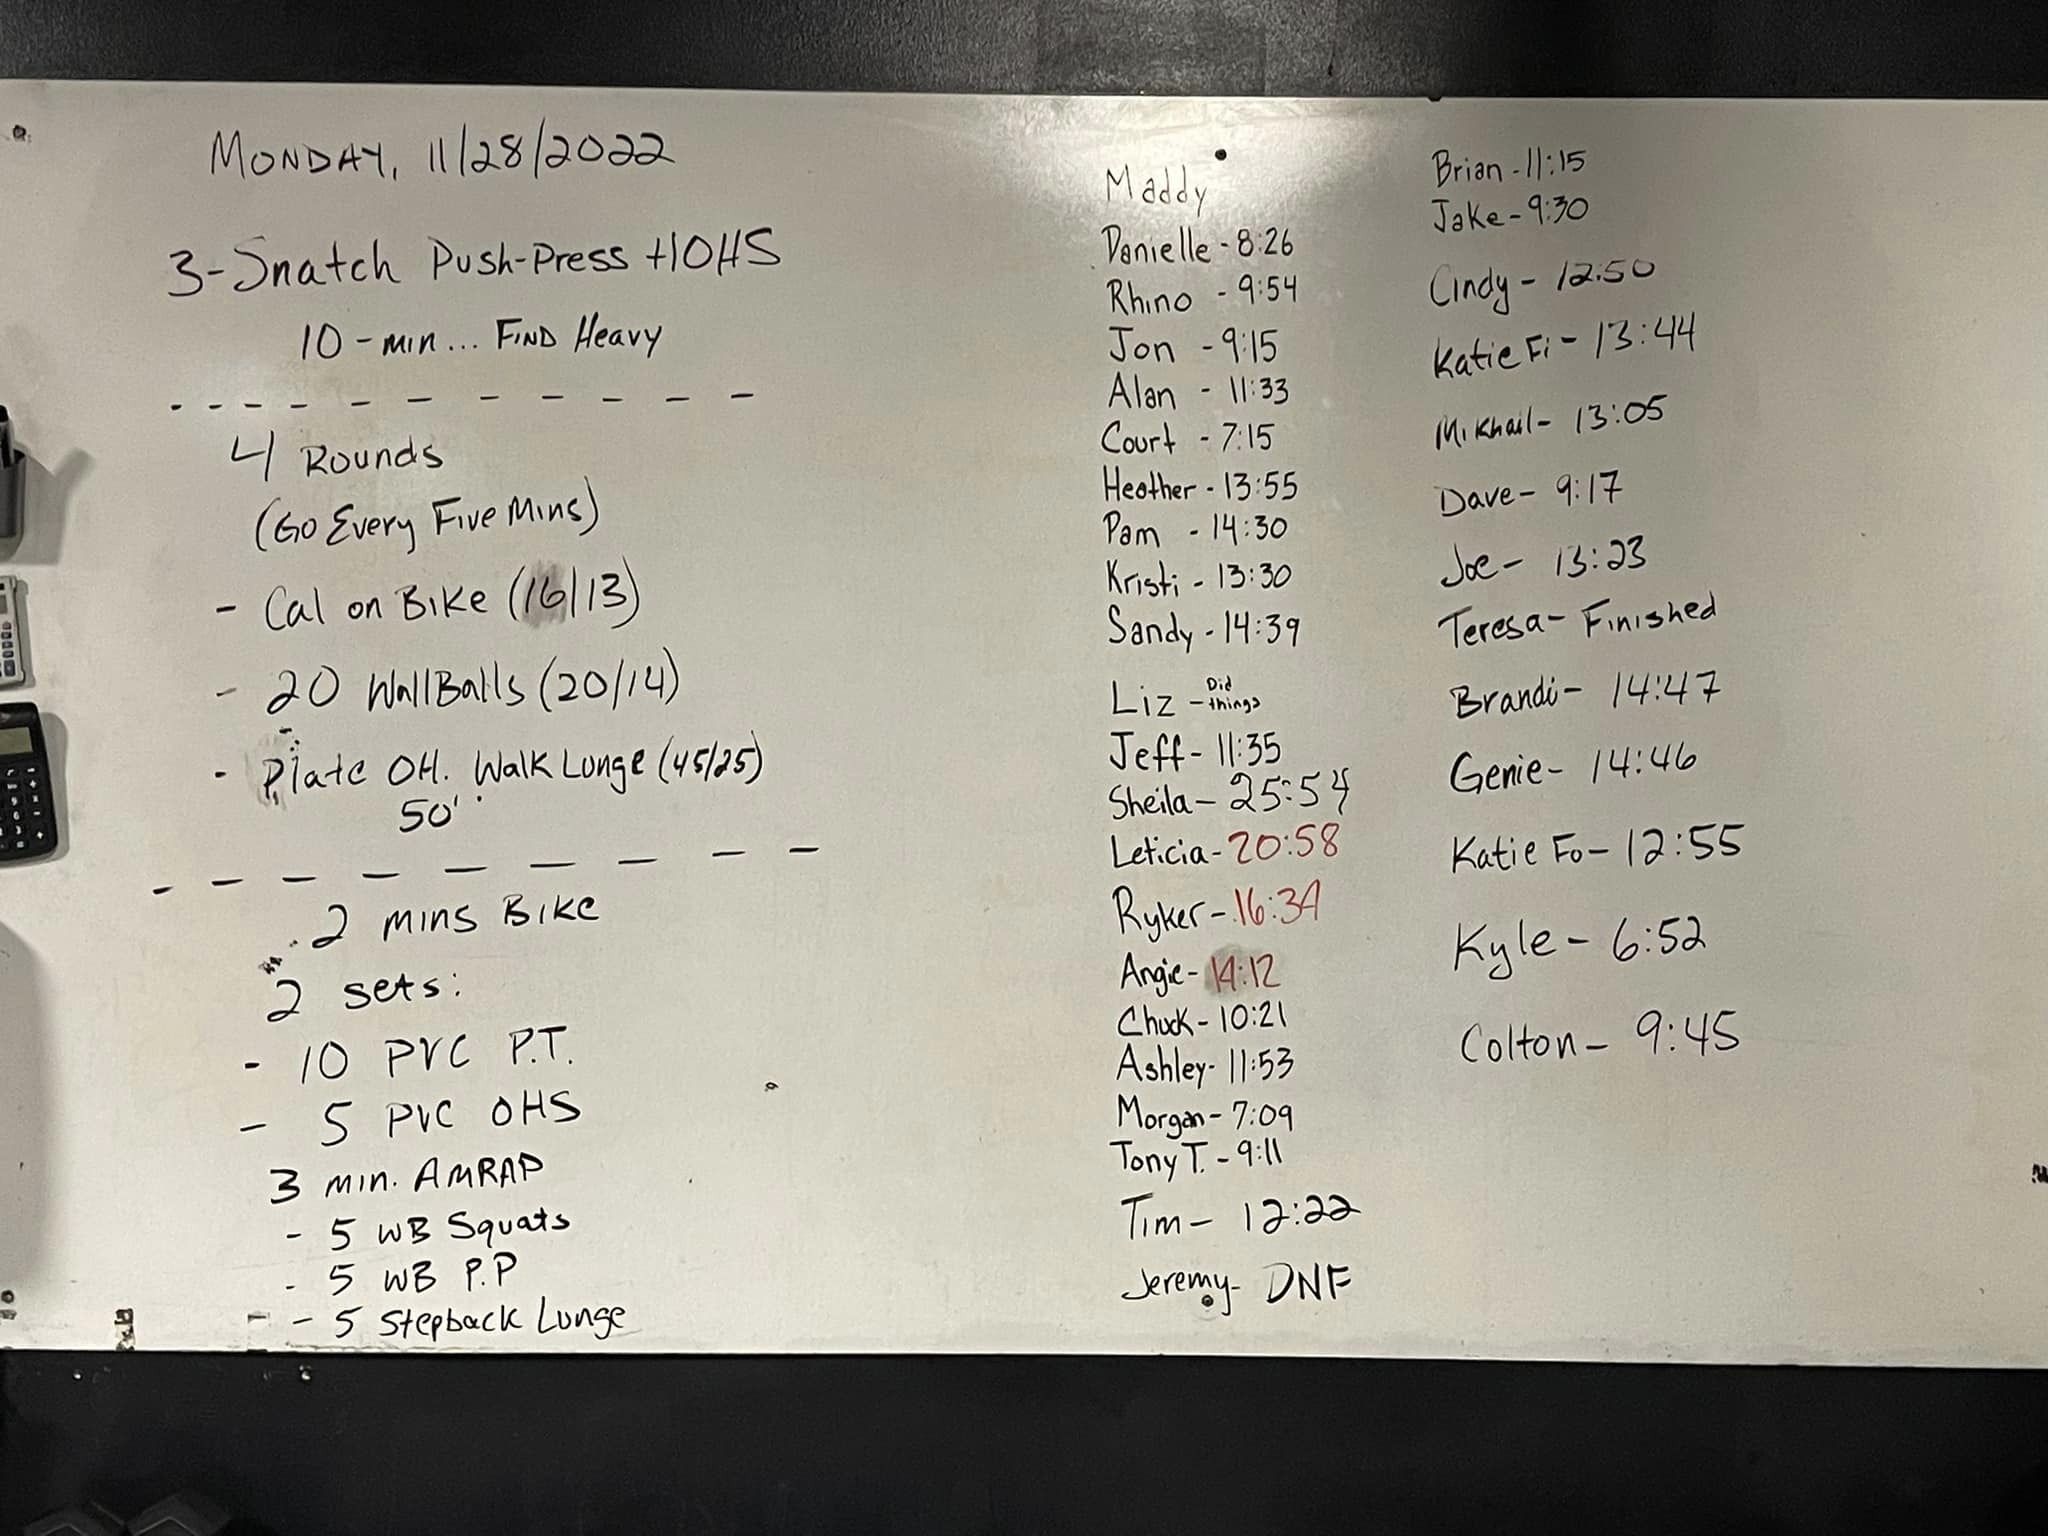 MONDAY, 11/28/2022
3-Snatch Push-Press +1OHS
10-min... Find Heavy
4 Rounds
(Go Every Five Mins)
- Cal on Bike (16/13)
- 20 WallBalls (20/14)
- Plate OH. Walk Lunge (45/25)
50'
2 mins Bike
2 sets:
- 10 PVC P.T.
- 5 PVC OHS
3 min. AMRAP
- 5 WB Squats
- 5 WB P.P
- 5 Stepback Lunge
Maddy
Danielle - 8:26
Rhino - 9:54
Jon - 9:15
Alan - 11:33
Court - 7:15
Heather - 13:55
Pam - 14:30
Kristi - 13:30
Sandy - 14:39
Liz - Did
things
Jeff - 11:35
Sheila - 25:54
Leticia - 20:58
Ryker - 16:34
Angie - 14:12
Chuck - 10:21
Ashley - 11:53
Morgan - 7:09
Tony T. - 9:11
Tim - 12:22
Jeremy - DNF
Brian - 11:15
Jake - 9:30
Cindy - 12:50
Katie Fi - 13:44
Mikhail - 13:05
Dave - 9:17
Joe - 13:23
Teresa - Finished
Brandi - 14:47
Genie - 14:46
Katie Fo - 12:55
Kyle - 6:52
Colton - 9:45